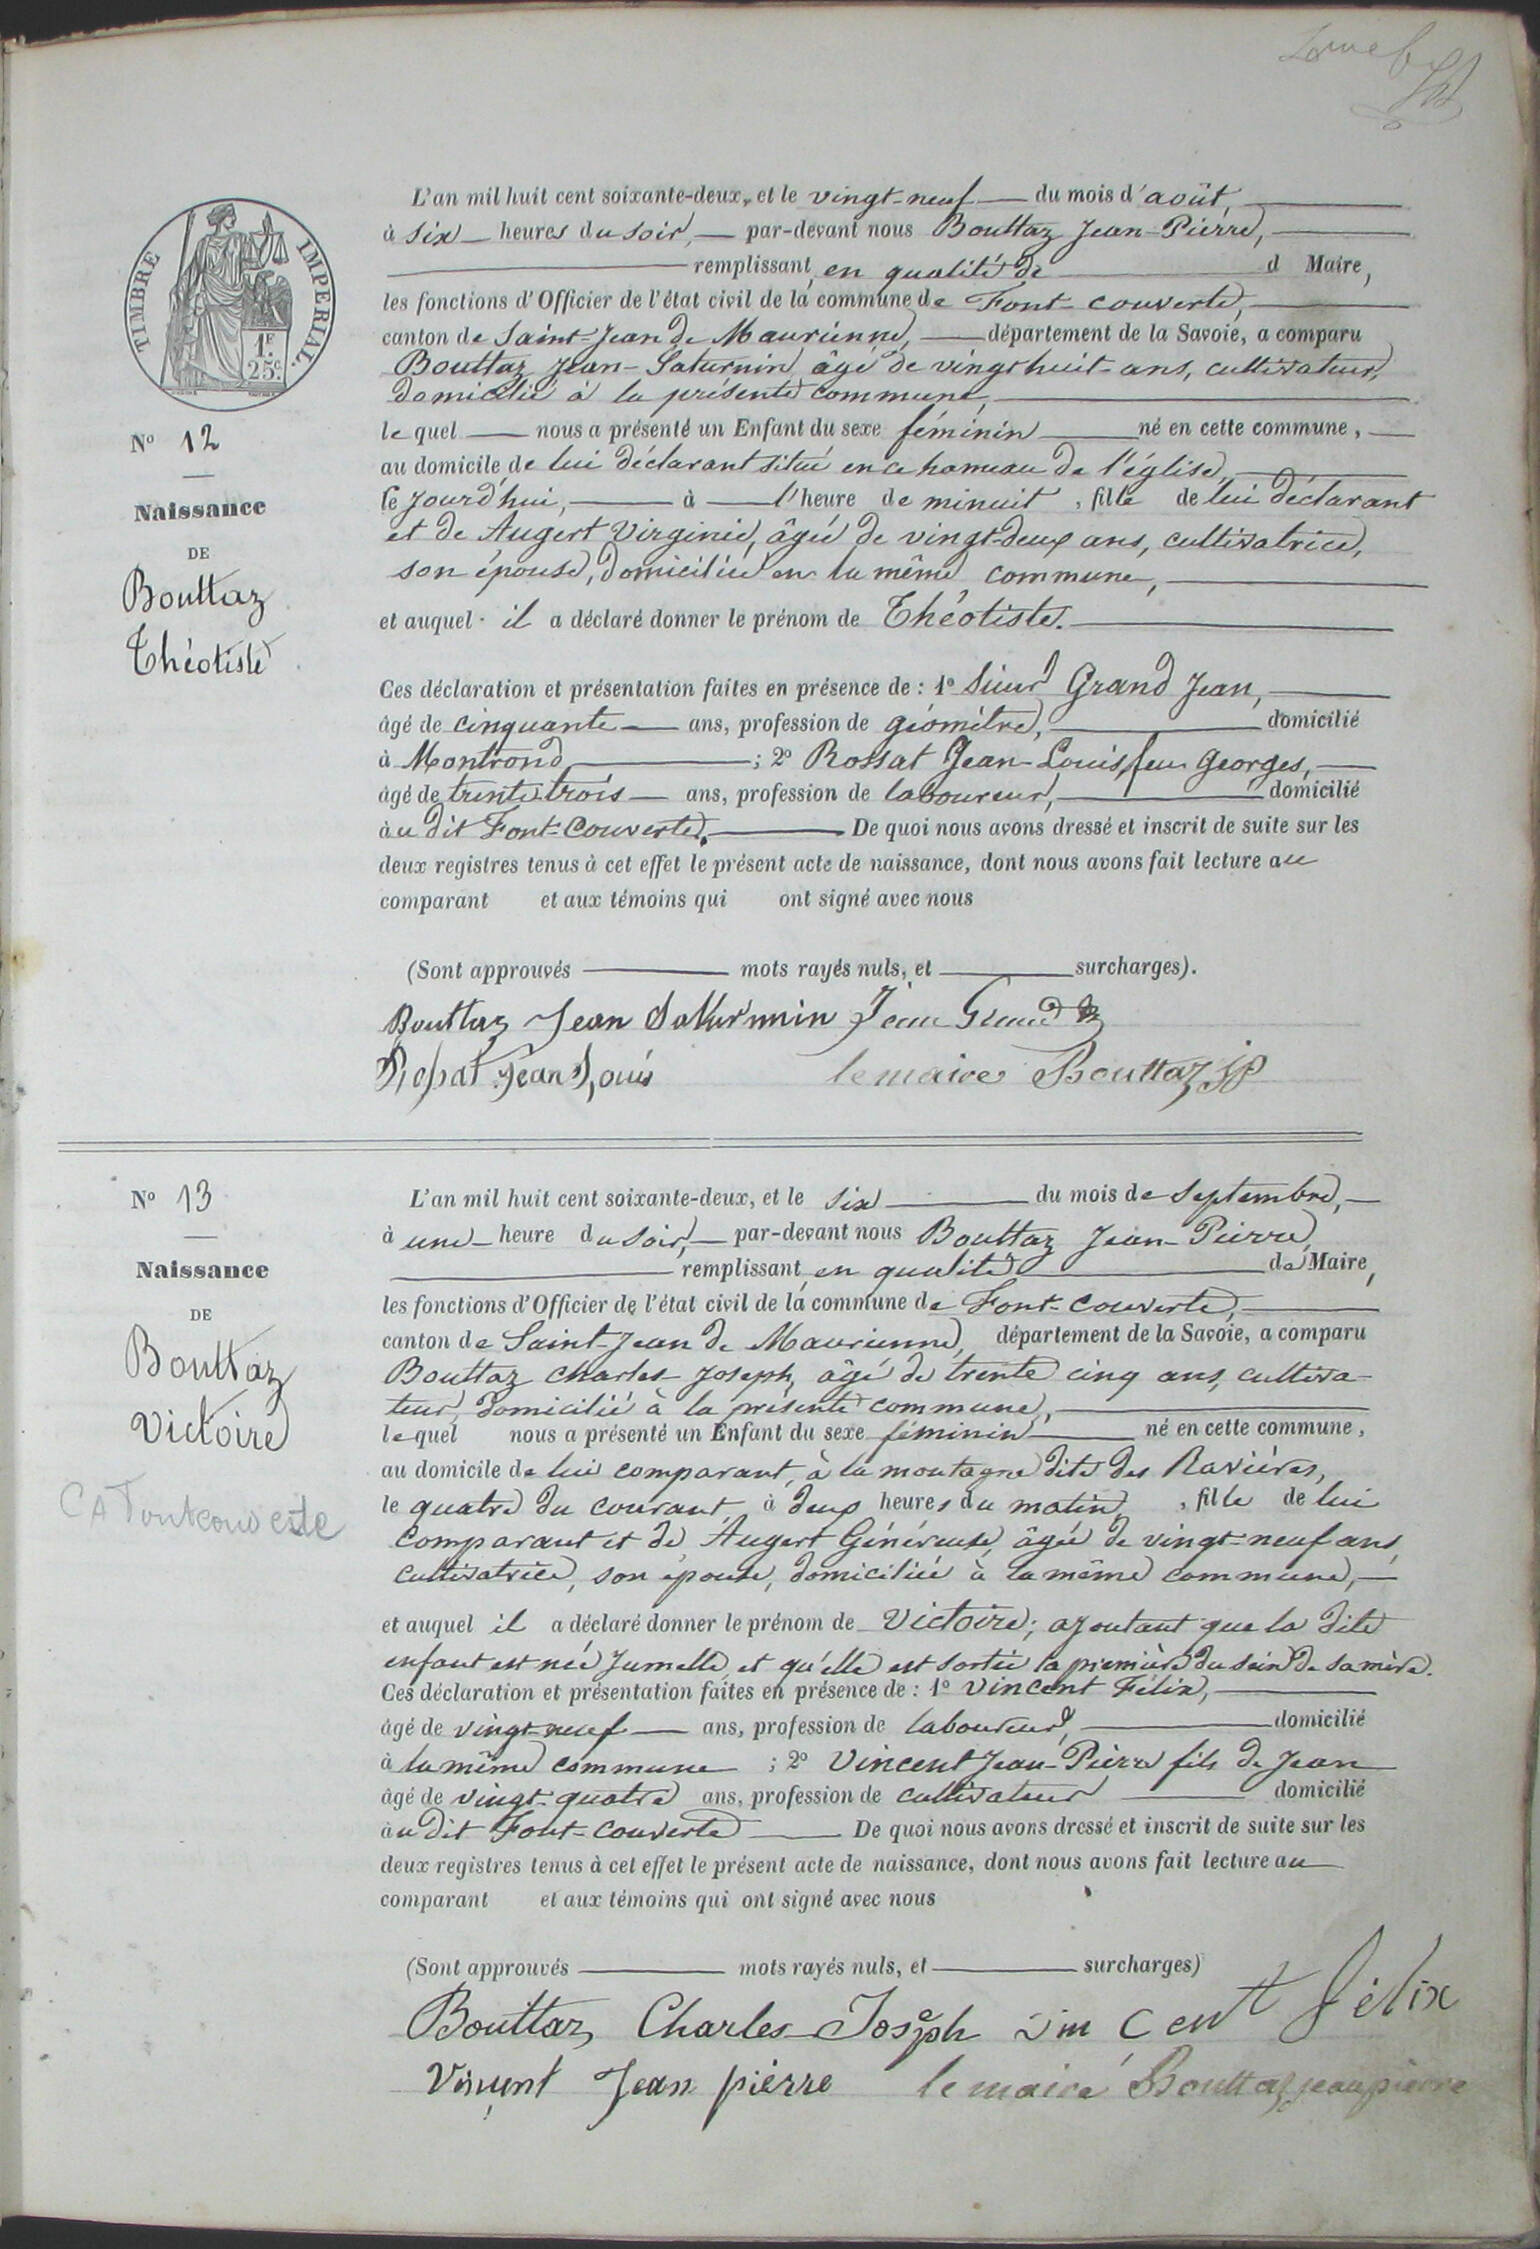 TIMBRE IMPERIAL
1F
25c.
N° 12
Naissance
DE
Bouttaz
Théotiste
L'an mil huit cent soixante-deux, et le vingt-neuf du mois d'août,
à six heures du soir, par-devant nous Bouttaz Jean-Pierre,
remplissant, en qualité de d Maire,
les fonctions d'Officier de l'état civil de la commune de Font-couverte,
canton de Saint-Jean de Maurienne, département de la Savoie, a comparu
Bouttaz Jean-Saturnin, âgé de vingt huit ans, cultivateur,
domicilié à la présente commune,
lequel nous a présenté un Enfant du sexe féminin né en cette commune,
au domicile de lui déclarant situé en ce hameau de l'église,
le jourd'hui, à l'heure de minuit, fille de lui déclarant
et de Augert Virginie, âgée de vingt-deux ans, cultivatrice,
son épouse, domiciliée en la même commune,
et auquel il a déclaré donner le prénom de Théotiste.
Ces déclaration et présentation faites en présence de : 1° Sieur Grand Jean,
âgé de cinquante ans, profession de géomètre, domicilié
à Montrond ; 2° Rossat Jean-Louis, feu Georges,
âgé de trente trois ans, profession de laboureur, domicilié
au dit Font-Couverte. De quoi nous avons dressé et inscrit de suite sur les
deux registres tenus à cet effet le présent acte de naissance, dont nous avons fait lecture au
comparant et aux témoins qui ont signé avec nous
(Sont approuvés mots rayés nuls, et surcharges).
Bouttaz Jean Saturnin Jean Grand
Rossat Jean Louis le maire Bouttaz JP
N° 13
Naissance
DE
Bouttaz
Victoire
CA Fontcouverte
L'an mil huit cent soixante-deux, et le six du mois de Septembre,
à une heure du soir, par-devant nous Bouttaz Jean-Pierre,
remplissant, en qualité de Maire,
les fonctions d'Officier de l'état civil de la commune de Font-couverte,
canton de Saint-Jean de Maurienne, département de la Savoie, a comparu
Bouttaz Charles Joseph, âgé de trente cinq ans, cultiva-
teur, domicilié à la présente commune,
lequel nous a présenté un Enfant du sexe féminin né en cette commune,
au domicile de lui comparant, à la montagne dite des Ravières,
le quatre du courant, à deux heures du matin, fille de lui
comparant et de Augert Généreuse, âgée de vingt-neuf ans,
cultivatrice, son épouse, domiciliée à la même commune,
et auquel il a déclaré donner le prénom de Victoire; ajoutant que la dite
enfant est née jumelle, et qu'elle est sortie la première du sein de sa mère.
Ces déclaration et présentation faites en présence de : 1° Vincent Félix,
âgé de vingt-neuf ans, profession de laboureur, domicilié
à la même commune ; 2° Vincent Jean-Pierre fils de Jean
âgé de vingt-quatre ans, profession de cultivateur domicilié
au dit Font-couverte De quoi nous avons dressé et inscrit de suite sur les
deux registres tenus à cet effet le présent acte de naissance, dont nous avons fait lecture au
comparant et aux témoins qui ont signé avec nous
(Sont approuvés mots rayés nuls, et surcharges)
Bouttaz Charles Joseph vincent félix
Vincent Jean pierre le maire Bouttaz jean pierre